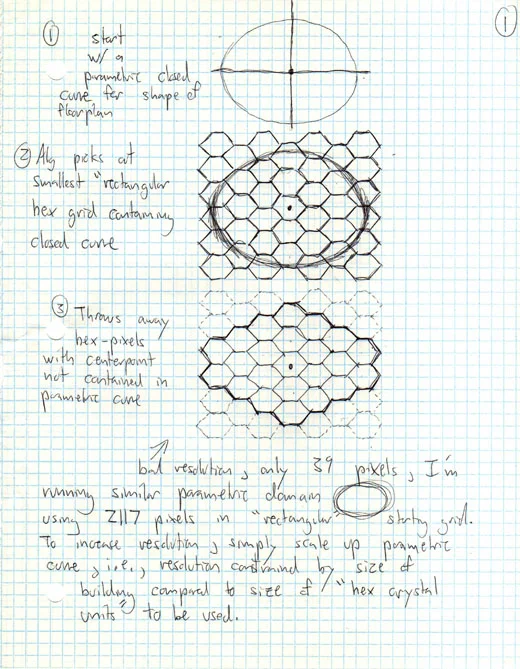 ①
① start
w/ a
parametric closed
curve for shape of
floorplan
② Alg picks out
smallest "rectangular
hex grid containing
closed curve
③ Throws away
hex-pixels
with centerpoint
not contained in
parametric curve
bad resolution, only 39 pixels, I'm
running similar parametric domain
using 2117 pixels in "rectangular" starting grid.
To increase resolution, simply scale up parametric
curve, i.e., resolution constrained by size of
building compared to size of "hex crystal
units" to be used.